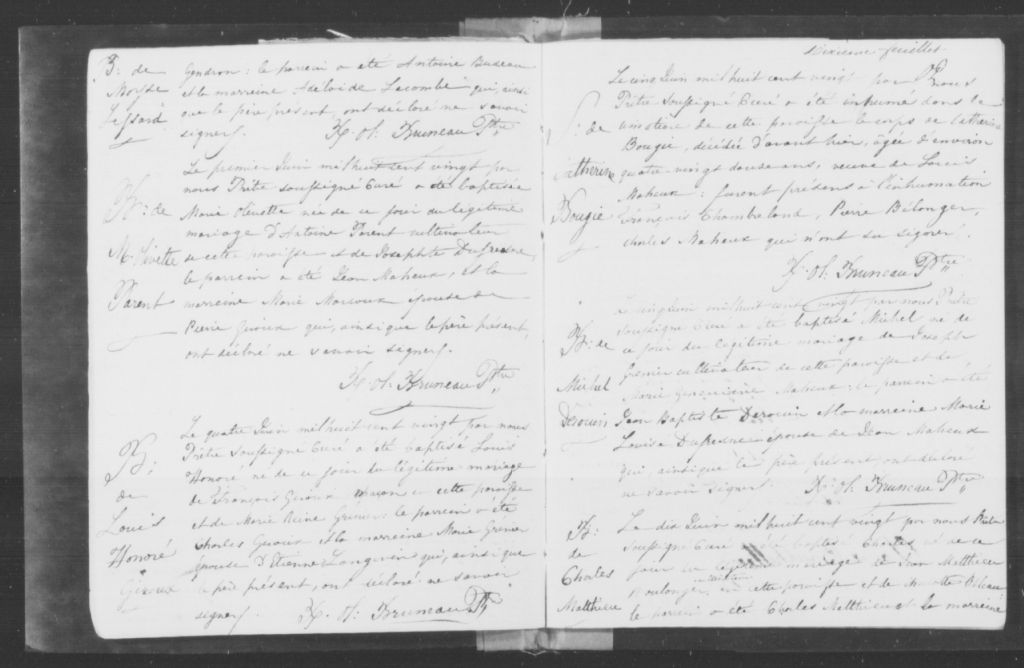 B: de
Moyse
Lessard
Gendron: le parrein a été Antoine Budeau
et la marreine Adelaide Lacombe qui, ainsi
que le père présent, ont déclaré ne savoir
signer.
F. Ol. Bruneau Ptre
B: de
M. Olivette
Parent
Le premier Juin mil huit cent vingt par
nous Prêtre soussigné Curé a été baptisée
Marie Olivette née de ce jour du légitime
mariage d'Antoine Parent cultivateur
de cette paroisse et de Josephte Dufresne,
le parrein a été Jean Maheux, et la
marreine Marie Marcoux épouse de
Pierre Giroux qui, ainsi que le père présent,
ont déclaré ne savoir signer.
F. Ol. Bruneau Ptre
B:
de
Louis
Honoré
Giroux
Le quatre Juin mil huit cent vingt par nous
Prêtre Soussigné Curé a été baptisé Louis
Honoré né de ce jour du légitime mariage
de François Giroux maçon en cette paroisse
et de Marie Reine Grenier: le parrein a été
Charles Giroux et la marreine Marie Grenier
épouse d'Etienne Langevin qui, ainsi que
le père présent, ont déclaré ne savoir
signer.
F. Ol. Bruneau Ptre
Dixieme feuillet
S: de
Catherine
Bougie
Le cinq Juin mil huit cent vingt par Nous
Prêtre Soussigné Curé a été inhumé dans le
cimetiere de cette paroisse le corps de Catherine
Bougie, décédée d'avant hier, agée d'environ
quatre vingt douze ans, veuve de Louis
Maheux: furent présens à l'inhumation
François Chambreland, Pierre Bélanger,
Charles Maheux qui n'ont su signer.
F. Ol. Bruneau Ptre
B: de
Michel
Derouin
Le cinq Juin mil huit cent vingt par nous Prêtre
soussigné Curé a été baptisé Michel né de
ce jour du légitime mariage de Joseph
cultivateur de cette paroisse et de
Marie Maheux: le parrein a été
Jean Baptiste Derouin et la marreine Marie
Louise Dufresne épouse de Jean Maheux
qui, ainsi que le père présent, ont déclaré
ne savoir signer.
F. Ol. Bruneau Ptre
B:
de
Charles
Matthieu
Le dix Juin mil huit cent vingt par nous Prêtre
soussigné Curé a été baptisé Charles né de ce
jour du légitime mariage de Jean Matthieu
boulanger, en cette paroisse et de
le parrein a été Charles Matthieu et la marreine